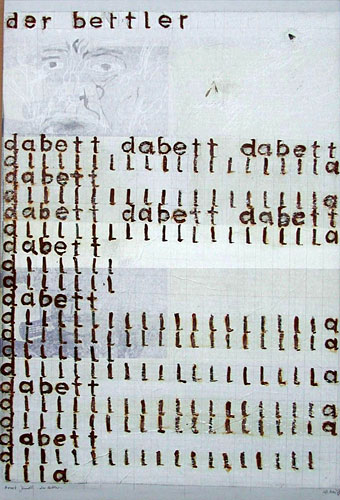 der bettler
dabett dabett dabett
alllllllllllllllllla
dabett
alllllllllllllllllla
dabett dabett dabett
alllllllllllllllllla
dabett
allllll
allllll
dabett
alllllllllllllllllla
alllllllllllllllllla
allllll
alllllllllllllllllla
dabett
alllllllllllllllllla
alllllllllllllllllla
dabett
allllllllllllllllll
llla